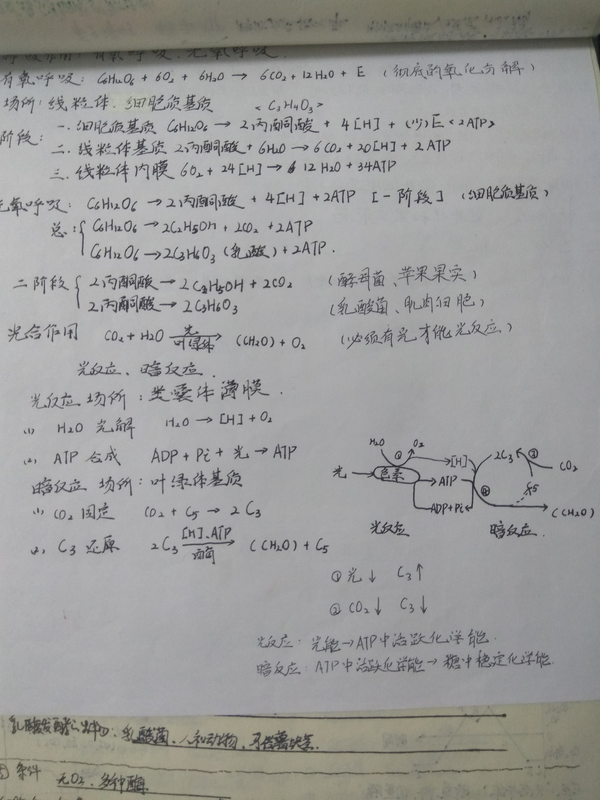 呼吸作用: 有氧呼吸.无氧呼吸.
有氧呼吸: C6H12O6 + 6O2 + 6H2O → 6CO2 + 12H2O + E (彻底的氧化分解)
场所: 线粒体. 细胞质基质 <C3H4O3>
阶段:
一. 细胞质基质 C6H12O6 → 2丙酮酸 + 4[H] + (少)E <2ATP>
二. 线粒体基质 2丙酮酸 + 6H2O → 6CO2 + 20[H] + 2ATP
三. 线粒体内膜 6O2 + 24[H] → 12H2O + 34ATP
无氧呼吸: C6H12O6 → 2丙酮酸 + 4[H] + 2ATP [一阶段] (细胞质基质)
总: C6H12O6 → 2C2H5OH + 2CO2 + 2ATP
C6H12O6 → 2C3H6O3 (乳酸) + 2ATP.
二阶段 2丙酮酸 → 2C2H5OH + 2CO2 (酵母菌、苹果果实)
2丙酮酸 → 2C3H6O3 (乳酸菌、肌肉细胞)
光合作用 CO2 + H2O 光 叶绿体 → (CH2O) + O2 (必须有光才能光反应)
光反应、暗反应.
光反应 场所: 类囊体薄膜.
(1) H2O 光解 H2O → [H] + O2
(2) ATP 合成 ADP + Pi + 光 → ATP
暗反应 场所: 叶绿体基质
(1) CO2 固定 CO2 + C5 → 2C3
(2) C3 还原 2C3 [H].ATP 酶 → (CH2O) + C5
H2O ① O2 [H] 2C3 ① CO2
光 色素 ATP ② C5
ADP+Pi (CH2O)
光反应 暗反应.
① 光↓ C3↑
② CO2↓ C3↓
光反应: 光能→ATP中活跃化学能.
暗反应: ATP中活跃化学能→糖中稳定化学能.
乳酸菌、人和动物、马铃薯块茎.
条件 无O2、多种酶.